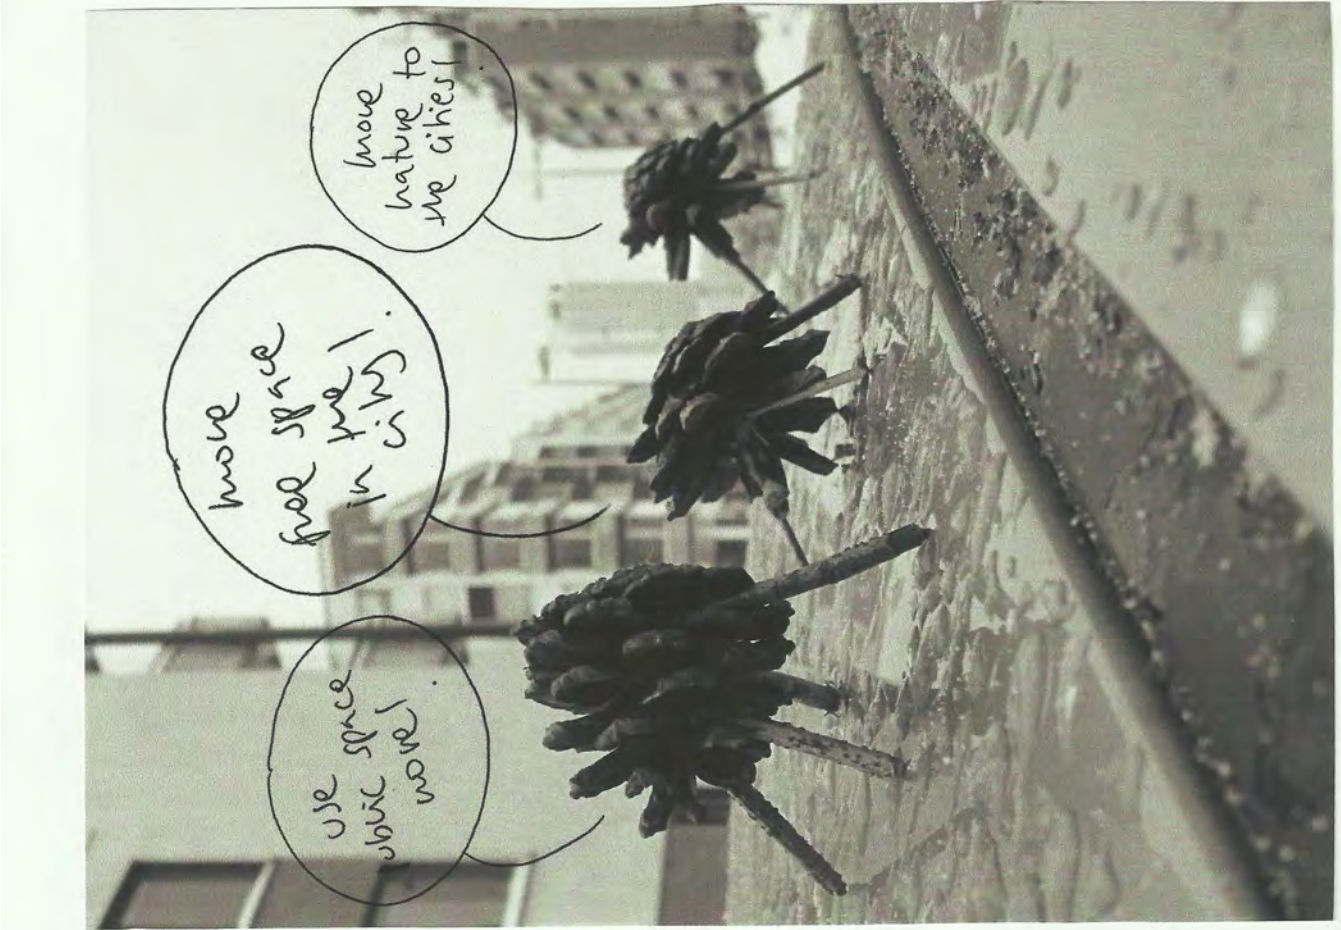 use
public space
more!
more
free space
in the
city!
more
nature to
the cities!